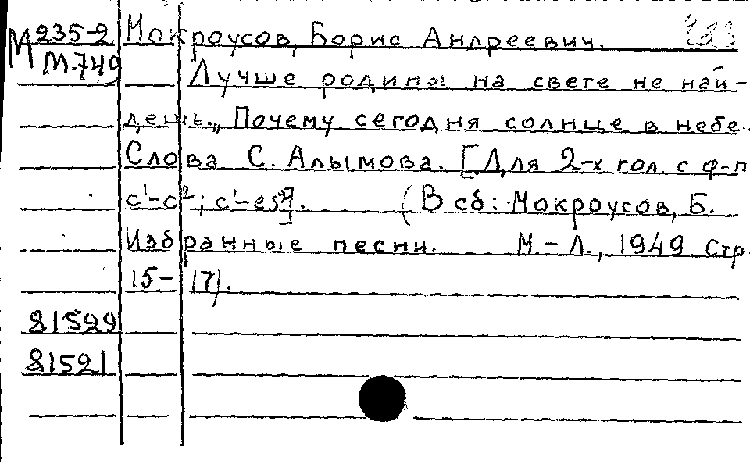 М 235-2 Мокроусов, Борис Андреевич.
М-749 Лучше родины на свете не най-
дешь. „Почему сегодня солнце в небе.
Слова С. Алымова. [Для 2-х гол. с ф-п
c¹-c²; c¹-es²]. (В сб: Мокроусов, Б.
Избранные песни. М.-Л., 1949 Стр.
15-17).
81529
81521